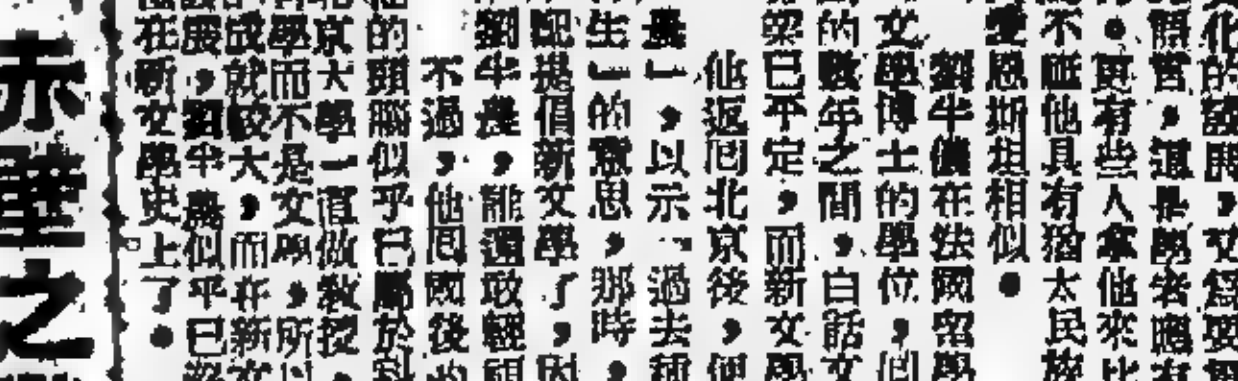 化的發展，文爲要
語言，這是學者應有
。更有些人拿他來比
不但他具有猶太民族
恩斯坦相似。
劉半儂在法國留學
文學博士的學位，但
的數年之間，白話文
梁已平定，而新文學
他返回北京後，便
農」，以示「過去種
生」的意思，那時，
配提倡新文學了，因
劉半農，誰還敢輕視
不過，他回國後的
的頭腦似乎已屬於科
京大學一道做教授，
學而不是文學，所以
成就較大，而在新文
展，劉半農似乎已
在新文學史上了。
赤壁之